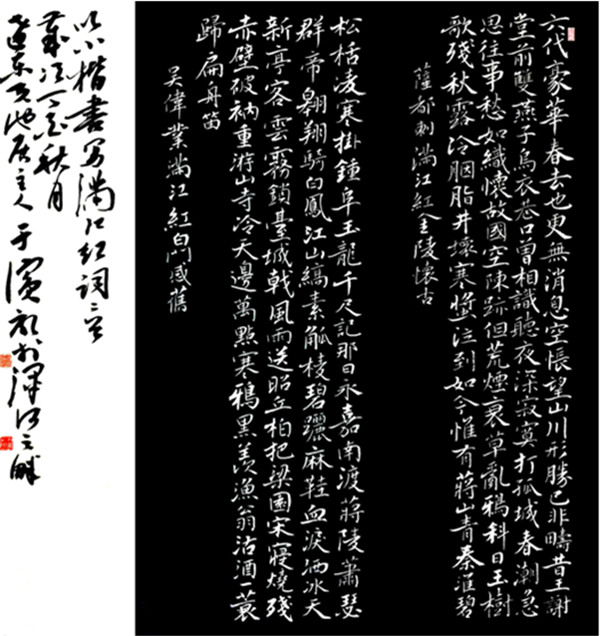 六代豪華春去也更無消息空悵望山川形勝已非疇昔王謝
堂前雙燕子烏衣巷口曾相識聽夜深寂寞打孤城春潮急
思往事愁如織懷故國空陳跡但荒煙衰草亂鴉斜日玉樹
歌殘秋露冷胭脂井壞寒螿泣到如今惟有蔣山青秦淮碧
薩都剌滿江紅金陵懷古
松栝凌寒掛鍾阜玉龍千尺記那日永嘉南渡蔣陵蕭瑟
群帝翱翔騎白鳳江山縞素觚棱碧躧麻鞋血淚洒冰天
新亭客雲霧鎖臺城戟風雨送昭丘柏把梁園宋寢燒殘
赤壁破衲重游山寺冷天邊萬點寒鴉黑羨漁翁沽酒一蓑
歸扁舟笛
吳偉業滿江紅白門感舊
以小楷書寫滿江紅詞二首
歲次丁亥秋月
遼東天池居主人于濱於渾河之畔